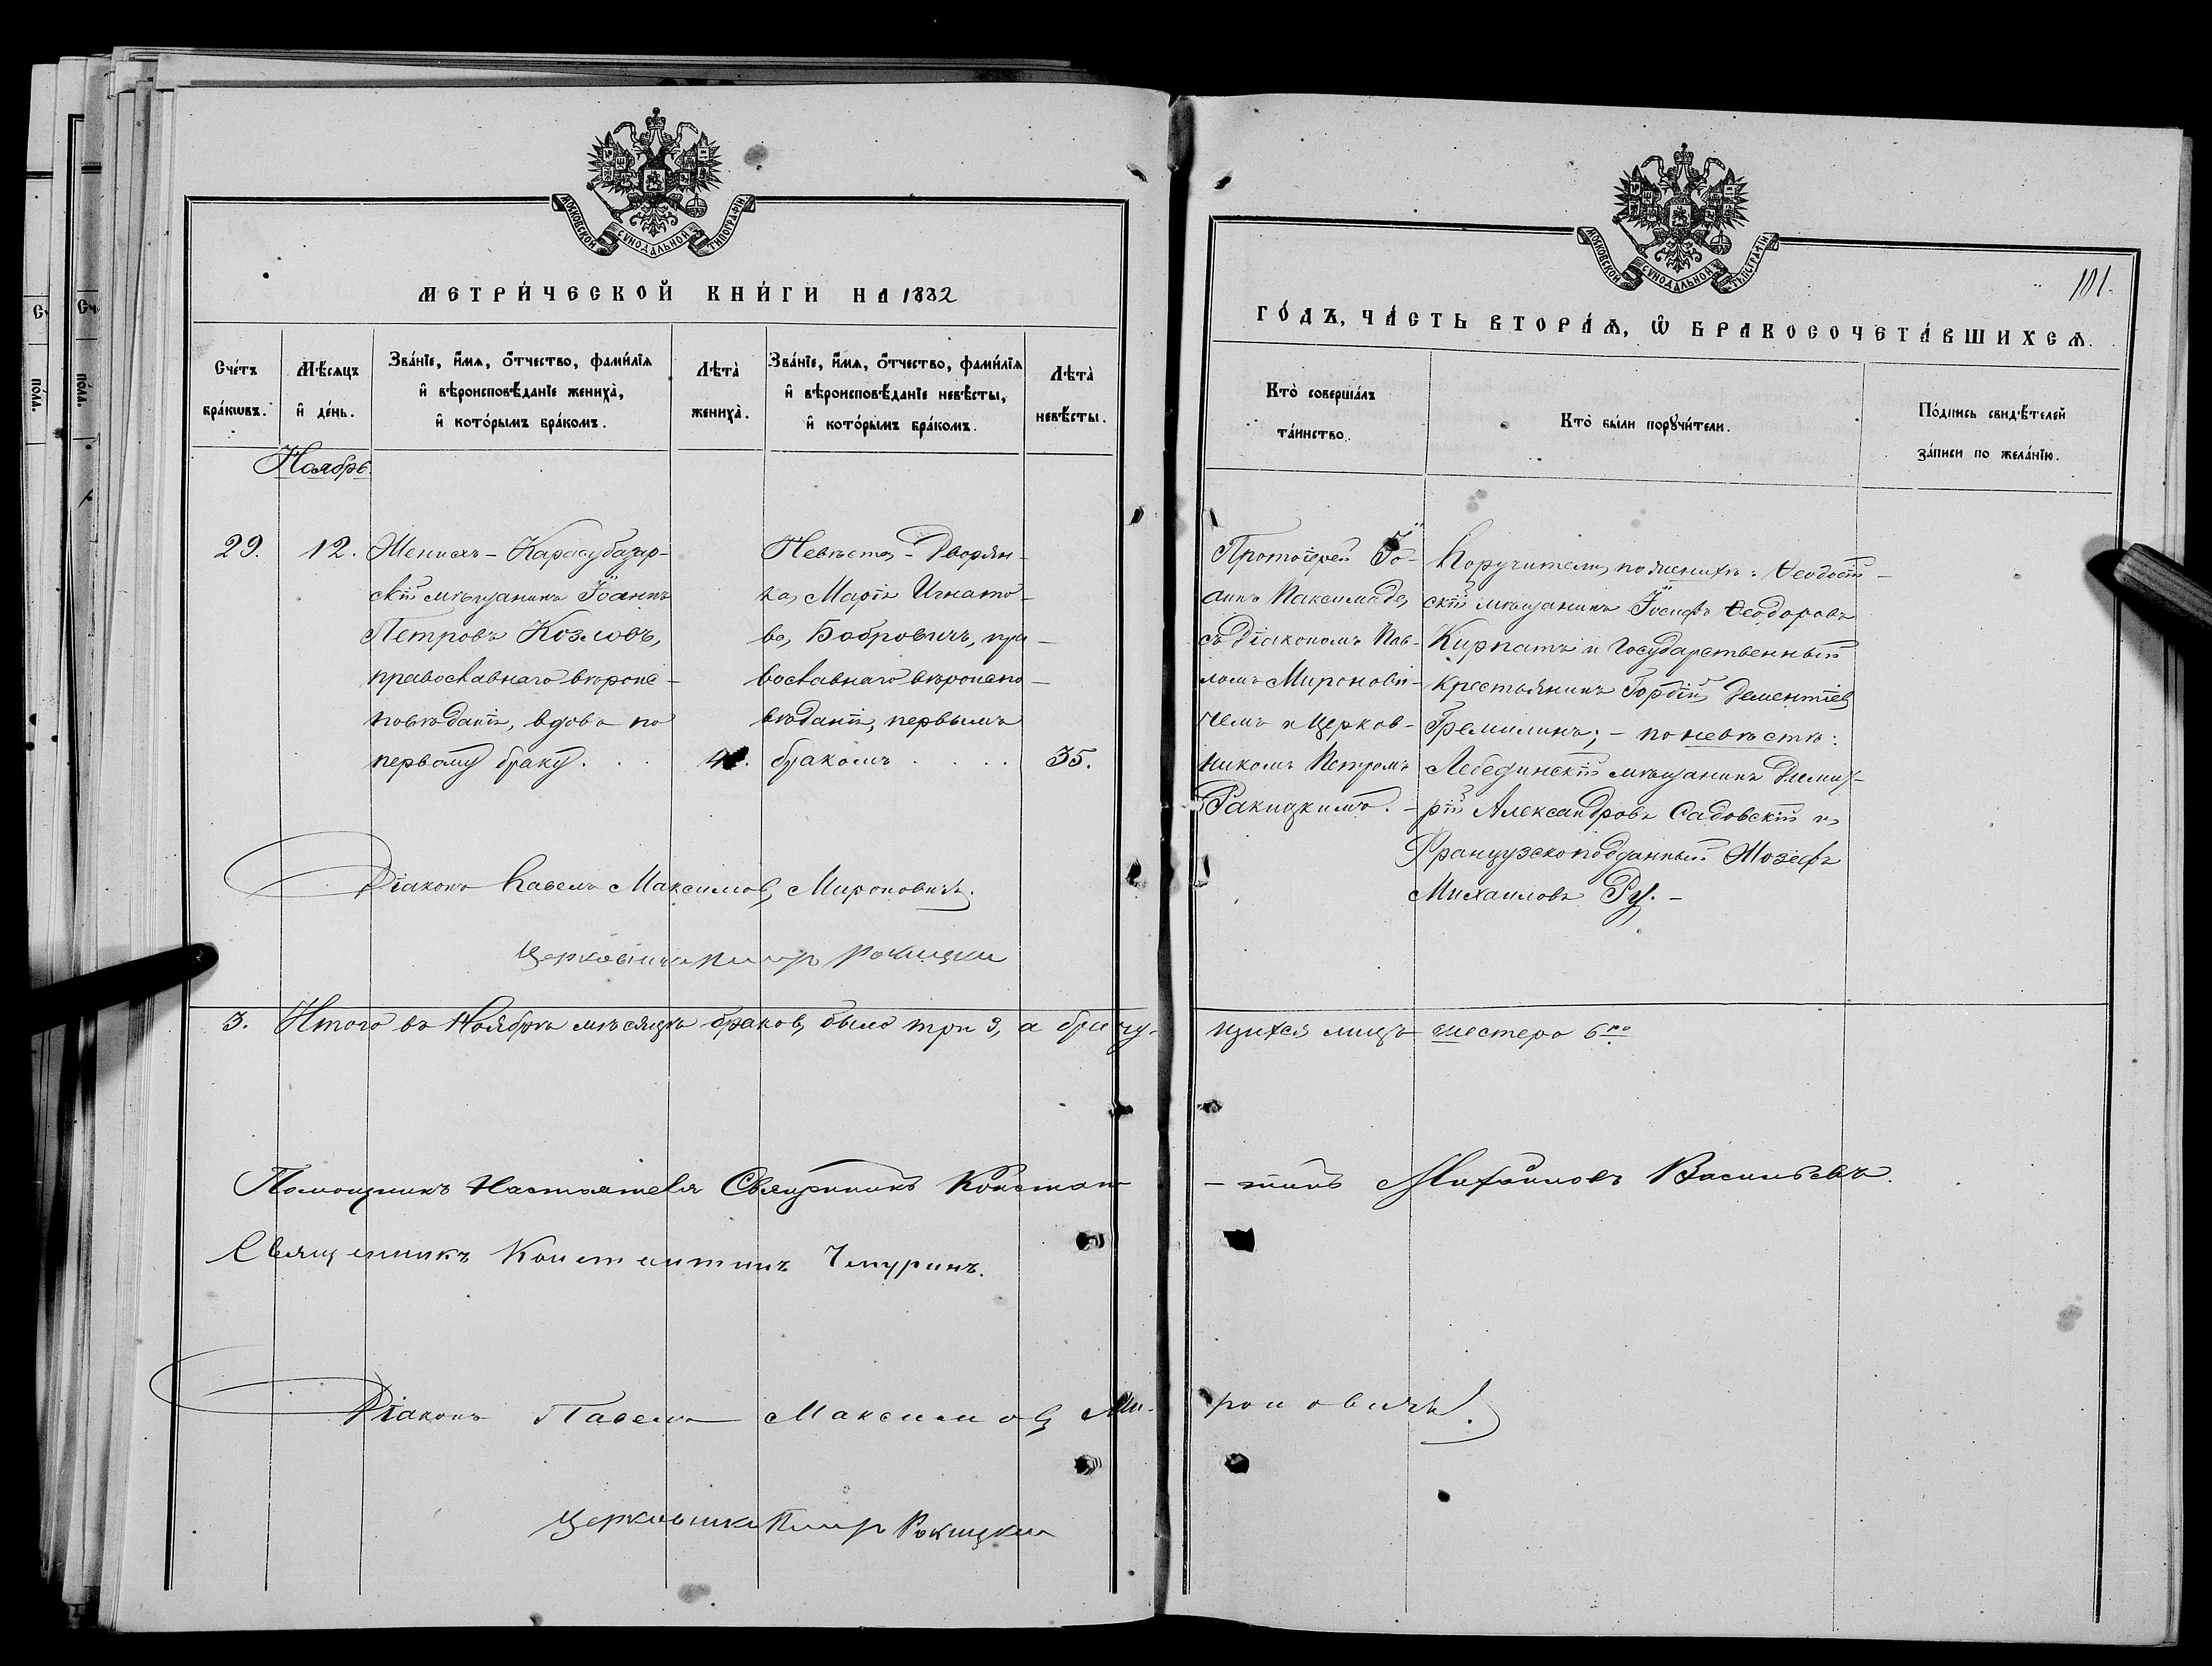 МОСКОВСКОЙ СѴНОДАЛЬНОЙ ТИПОГРАФІИ
МЕТРИ́ЧЕСКОЙ КНИ́ГИ НА 1882
Сче́тъ бра́кѡвъ.
Мѣ́сяцъ и҆ де́нь.
Зва́нїе, и҆́мѧ, ѻ҆́тчество, фами́лїѧ
и҆ вѣроисповѣ́данїе жениха̀,
и҆ кото́рымъ бра́комъ.
Лѣта̀ жениха̀.
Зва́нїе, и҆́мѧ, ѻ҆́тчество, фами́лїѧ
и҆ вѣроисповѣ́данїе невѣ́сты,
и҆ кото́рымъ бра́комъ.
Лѣта̀ невѣ́сты.
Ноябрь
29. 12.
Женихъ – Карасубазар-
скій мѣщанинъ Іоаннъ
Петровъ Козловъ,
православнаго вѣроис-
повѣданія, вдовъ по
первому браку. . .
Невѣста – Дворян-
ка, Марія Игнато-
ва, Бобровичъ, пра-
вославнаго вѣроиспо-
вѣданія, первымъ
бракомъ . . . .
35.
Діаконъ Павелъ Максимовъ Мироновичъ.
Церковникъ Петръ Рокицкий
3. Итого въ Ноябрѣ мѣсяцѣ браковъ было три 3, а бречу-
Помощникъ Настоятеля Священникъ Констан
Священникъ Константинъ Чепуринъ.
Діаконъ Павелъ Максимовъ Ми-
Церковникъ Петръ Рокицкий
МОСКОВСКОЙ СѴНОДАЛЬНОЙ ТИПОГРАФІИ
101.
ГО́ДЪ, ЧА́СТЬ ВТОРА́Ѧ, Ѽ БРАКОСОЧЕТА́ВШИХСѦ.
Кто̀ соверша́лъ
та́инство.
Кто̀ бы́ли порꙋчи́тели.
По́дпись свидѣ́телей
за́писи по жела́нїю.
Протоіерей Іо-
аннъ Паксимаде,
съ Діакономъ Пав-
ломъ Миронови-
чемъ и Церков-
никомъ Петромъ
Ракицкимъ. –
Поручители, по женихѣ: Ѳеодосій-
скій мѣщанинъ Іосифъ Ѳеодоровъ
Кирпатъ и Государственный
крестьянинъ Гордій Дементіевъ
Гремилинъ; – по невѣстѣ:
Лебединскій мѣщанинъ Димит-
рій Александровъ Садовскій и
Французскоподданный Жозефъ
Михаиловъ Ру. –
щихся лицъ шестеро 6ро
– тинъ Михаиловъ Васильевъ.
роновичъ.